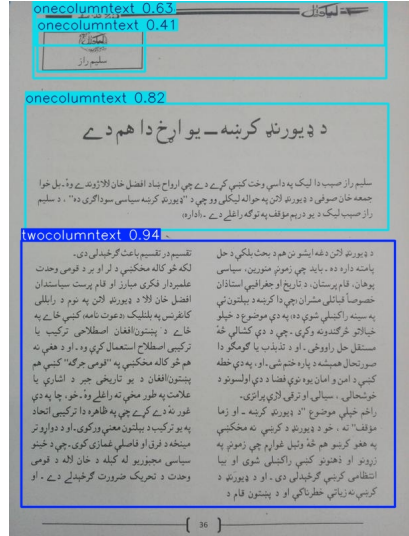 onecolumntext 0.63
onecolumntext 0.41
سلیم راز
onecolumntext 0.82
د ډیورنډ کرښه ــ یو اړخ دا هم دے
سلیم راز صیب دا لیک په داسې وخت کښې کړے دے چې ارواح ښاد افضل خان لالا ژوندے وۀ. بل خوا
جمعه خان صوفي د ډیورنډ لائن په حواله لیکلی وو چې د "ډیورنډ کرښه سیاسی سوداګری ده" ، د سلیم
راز صیب لیک د یو دریم مؤقف په توګه راغلے دے ..(اداره)
twocolumntext 0.94
د ډیورنډ لائن دغه ایشو نن هم د بحث بلکې د حل
پامته داره ده . باید چې زمونږ منورین، سیاسی
پوهان، قام پرستان، د تاریخ او جغرافیې استاذان
خصوصاً قبائلی مشران چې دا کرښه د بېلتون ئې
په سینه راکښلې شوې ده؛ په دې موضوع د خپلو
خیالاتو څرګندونه وکړی . چې د دې کشالې څۀ
مستقل حل راووځی . او د تذبذب یا ګومګو دا
صورتحال همیشه د پاره ختم شی . او، په دې خطه
کښې د امن و امان یوه نوې فضا د دې اولسونو د
خوشحالۍ ، سیالۍ او ترقۍ لارې پرانزی.
راځم خپلې موضوع "د ډیورنډ کرښه . او زما
مؤقف" ته ، خو د ډیورنډ د کرښې نه مخکښې
په هغو کرښو هم څۀ وئیل غواړم چې زمونږ په
زړونو او ذهنونو کښې راکښلی شوی او بیا
انتظامی کرښې ګرځېدلی دی . او د ډیورنډ د
کرښې نه زیاتې خطرناکې او د پښتون قام د
تقسیم در تقسیم باعث ګرځېدلی دی.
لکه څو کاله مخکښې د لر او بر د قومی وحدت
علمبردار فکری مبارز او قام پرست سیاستدان
افضل خان لالا د ډیورنډ لائن په نوم د رابللی
کانفرنس په بلنلیک (دعوت نامه) کښې ځائے په
ځائے د پښتون/افغان اصطلاحی ترکیب یا
ترکیبی اصطلاح استعمال کړې وه . او د هغې نه
هم څو کاله مخکښې په "قومی جرګه" کښې هم
پښتون/افغان د یو تاریخی جبر د اشارې یا
علامت په طور مخې ته راغلې وۀ . خو، چا په دې
غور نۀ دے کړے چې په ظاهره دا ترکیبی اتحاد
په یو ترکیب د بېلتون معنې ورکوی. او د دواړو تر
مینځه د فرق او فاصلې غمازی کوی. چې د ځینو
سیاسی مجبوریو له کبله د خان لالا د قومی
وحدت د تحریک ضرورت ګرځېدلے دے . او
36